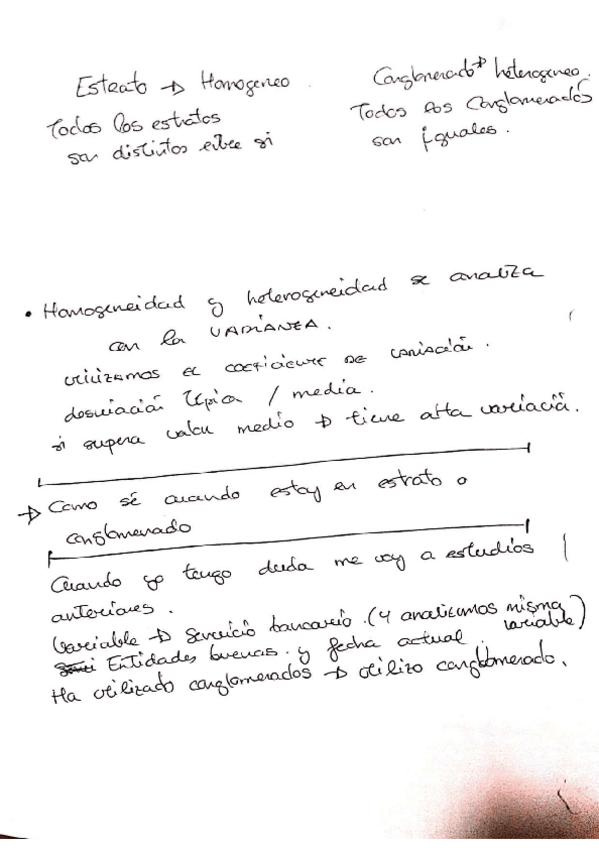 Estrato → Homogeneo
Todos los estratos
son distintos entre si
Conglomerado → heterogeneo.
Todos los Conglomerados
son iguales.
• Homogeneidad y heterogeneidad se analiza
con la VARIANZA.
utilizamos el coeficiente de variación.
desviación típica / media.
si supera valor medio → tiene alta variación.
→ Como sé cuando estoy en estrato o
conglomerado
Cuando yo tengo duda me voy a estudios
anteriores.
Variable → Servicio bancario. (y analizamos misma variable)
Entidades buenas. y fecha actual.
Ha utilizado conglomerados → utilizo conglomerado.